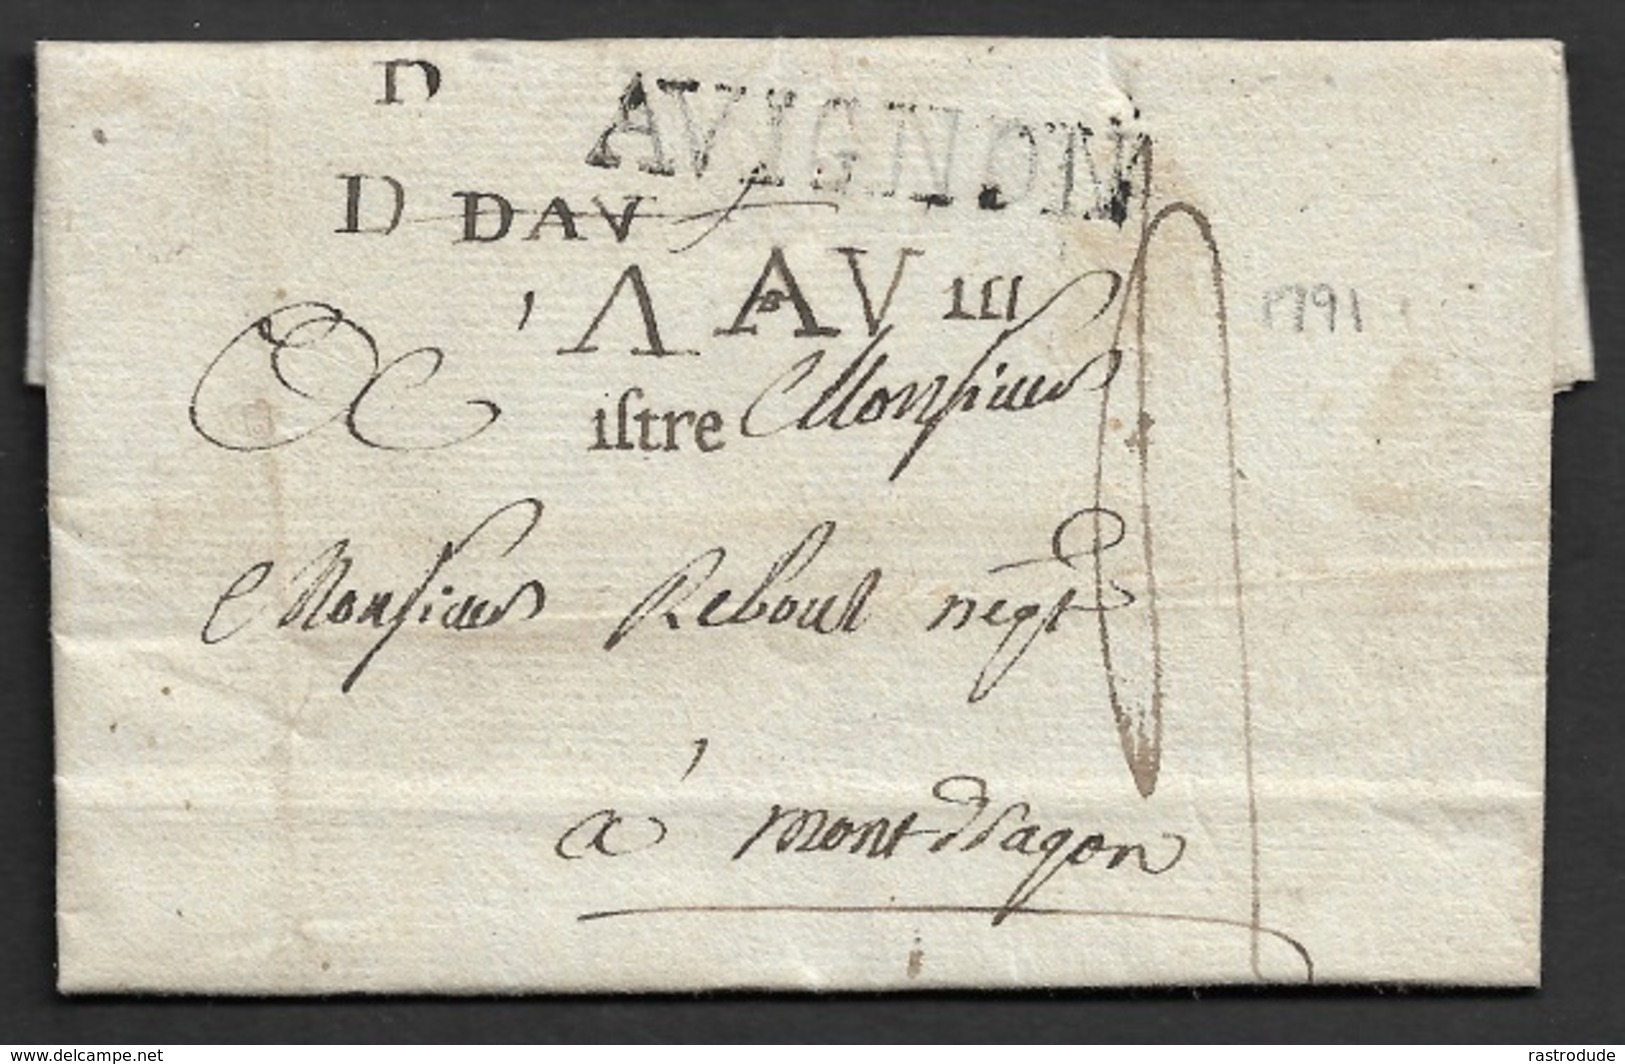 D AVIGNON
D DAV
Λ AV
1791
iſtre Monsieur
Monsieur Reboul negt
à mont dragon
www.delcampe.net
rastrodude